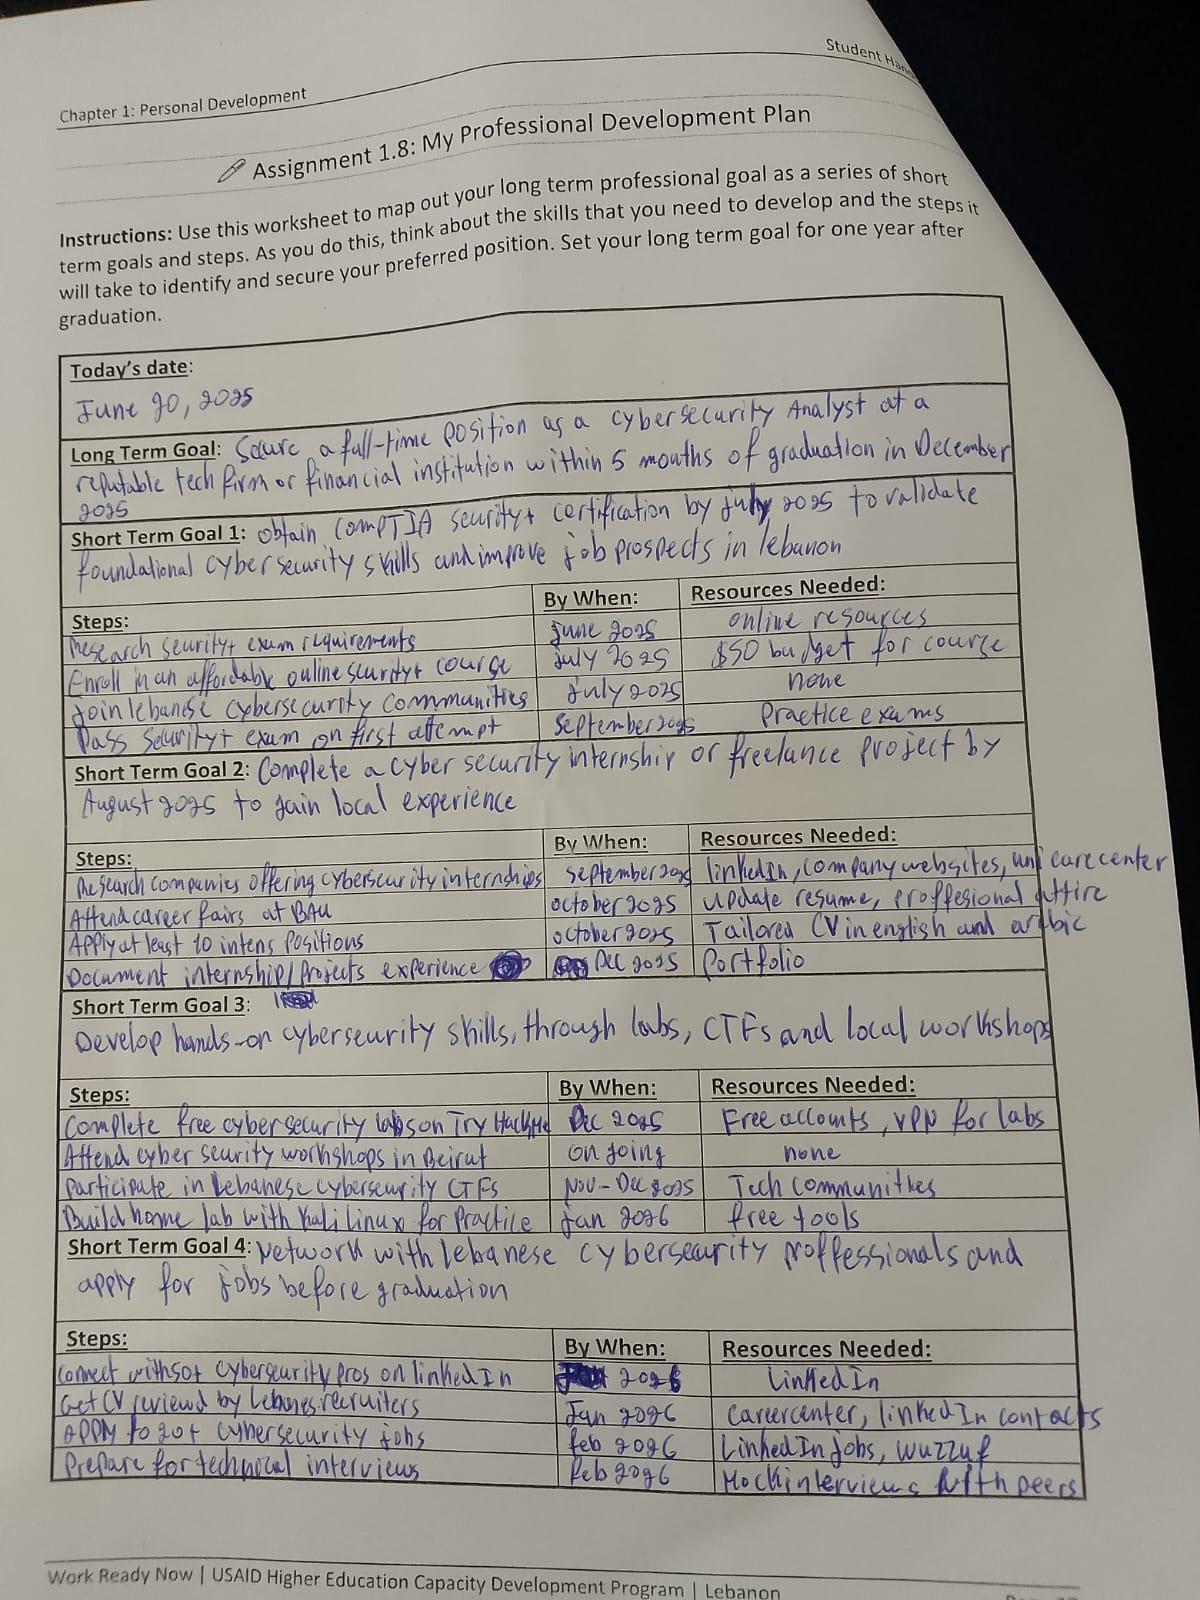 Student Han
Chapter 1: Personal Development
Assignment 1.8: My Professional Development Plan
Instructions: Use this worksheet to map out your long term professional goal as a series of short
term goals and steps. As you do this, think about the skills that you need to develop and the steps it
will take to identify and secure your preferred position. Set your long term goal for one year after
graduation.
Today's date:
June 20, 2025
Long Term Goal: Secure a full-time position as a cybersecurity Analyst at a
reputable tech firm or financial institution within 5 months of graduation in December
2025
Short Term Goal 1: obtain CompTIA security+ certification by july 2025 to validate
foundational cybersecurity skills and improve job prospects in lebanon
Steps: By When: Resources Needed:
Research seurity+ exam requirements june 2025 online resources
Enroll in an affordable online scurity+ course july 2025 $50 budget for course
join lebanese cybersecurity communities july 2025 none
Pass security+ exam on first attempt september 2025 Practice exams
Short Term Goal 2: Complete a cyber security internship or freelance project by
August 2025 to gain local experience
Steps: By When: Resources Needed:
Research companies offering cyberseurity internships september 2025 linkedIn, company websites, uni care center
Attend career fairs at BAU october 2025 update resume, proffesional attire
Apply at least 10 intens positions october 2025 Tailored CV in english and arabic
Document internship/Projects experience Dec 2025 Portfolio
Short Term Goal 3:
Develop hands-on cyberseurity skills, through labs, CTFs and local workshops
Steps: By When: Resources Needed:
Complete free cybersecurity labs on Try HackMe Dec 2025 Free accounts, VPN for labs
Attend cyber scurity workshops in Beirut on going none
participate in Lebanese cyberseurity CTFs Nov-Dec 2025 Tech communities
Build home lab with Kali linux for Practice jan 2026 free tools
Short Term Goal 4: Network with lebanese cybersecurity proffessionals and
apply for jobs before graduation
Steps: By When: Resources Needed:
Connect with 50+ cyberseurity pros on linkedIn 2026 LinkedIn
Get CV reviewd by Lebanes recruiters Jan 2026 Careercenter, linkedIn contacts
apply to 20+ cybersecurity jobs feb 2026 LinkedIn jobs, wuzzuf
Prepare for technical interviews Feb 2026 Mock interviews with peers
Work Ready Now | USAID Higher Education Capacity Development Program | Lebanon